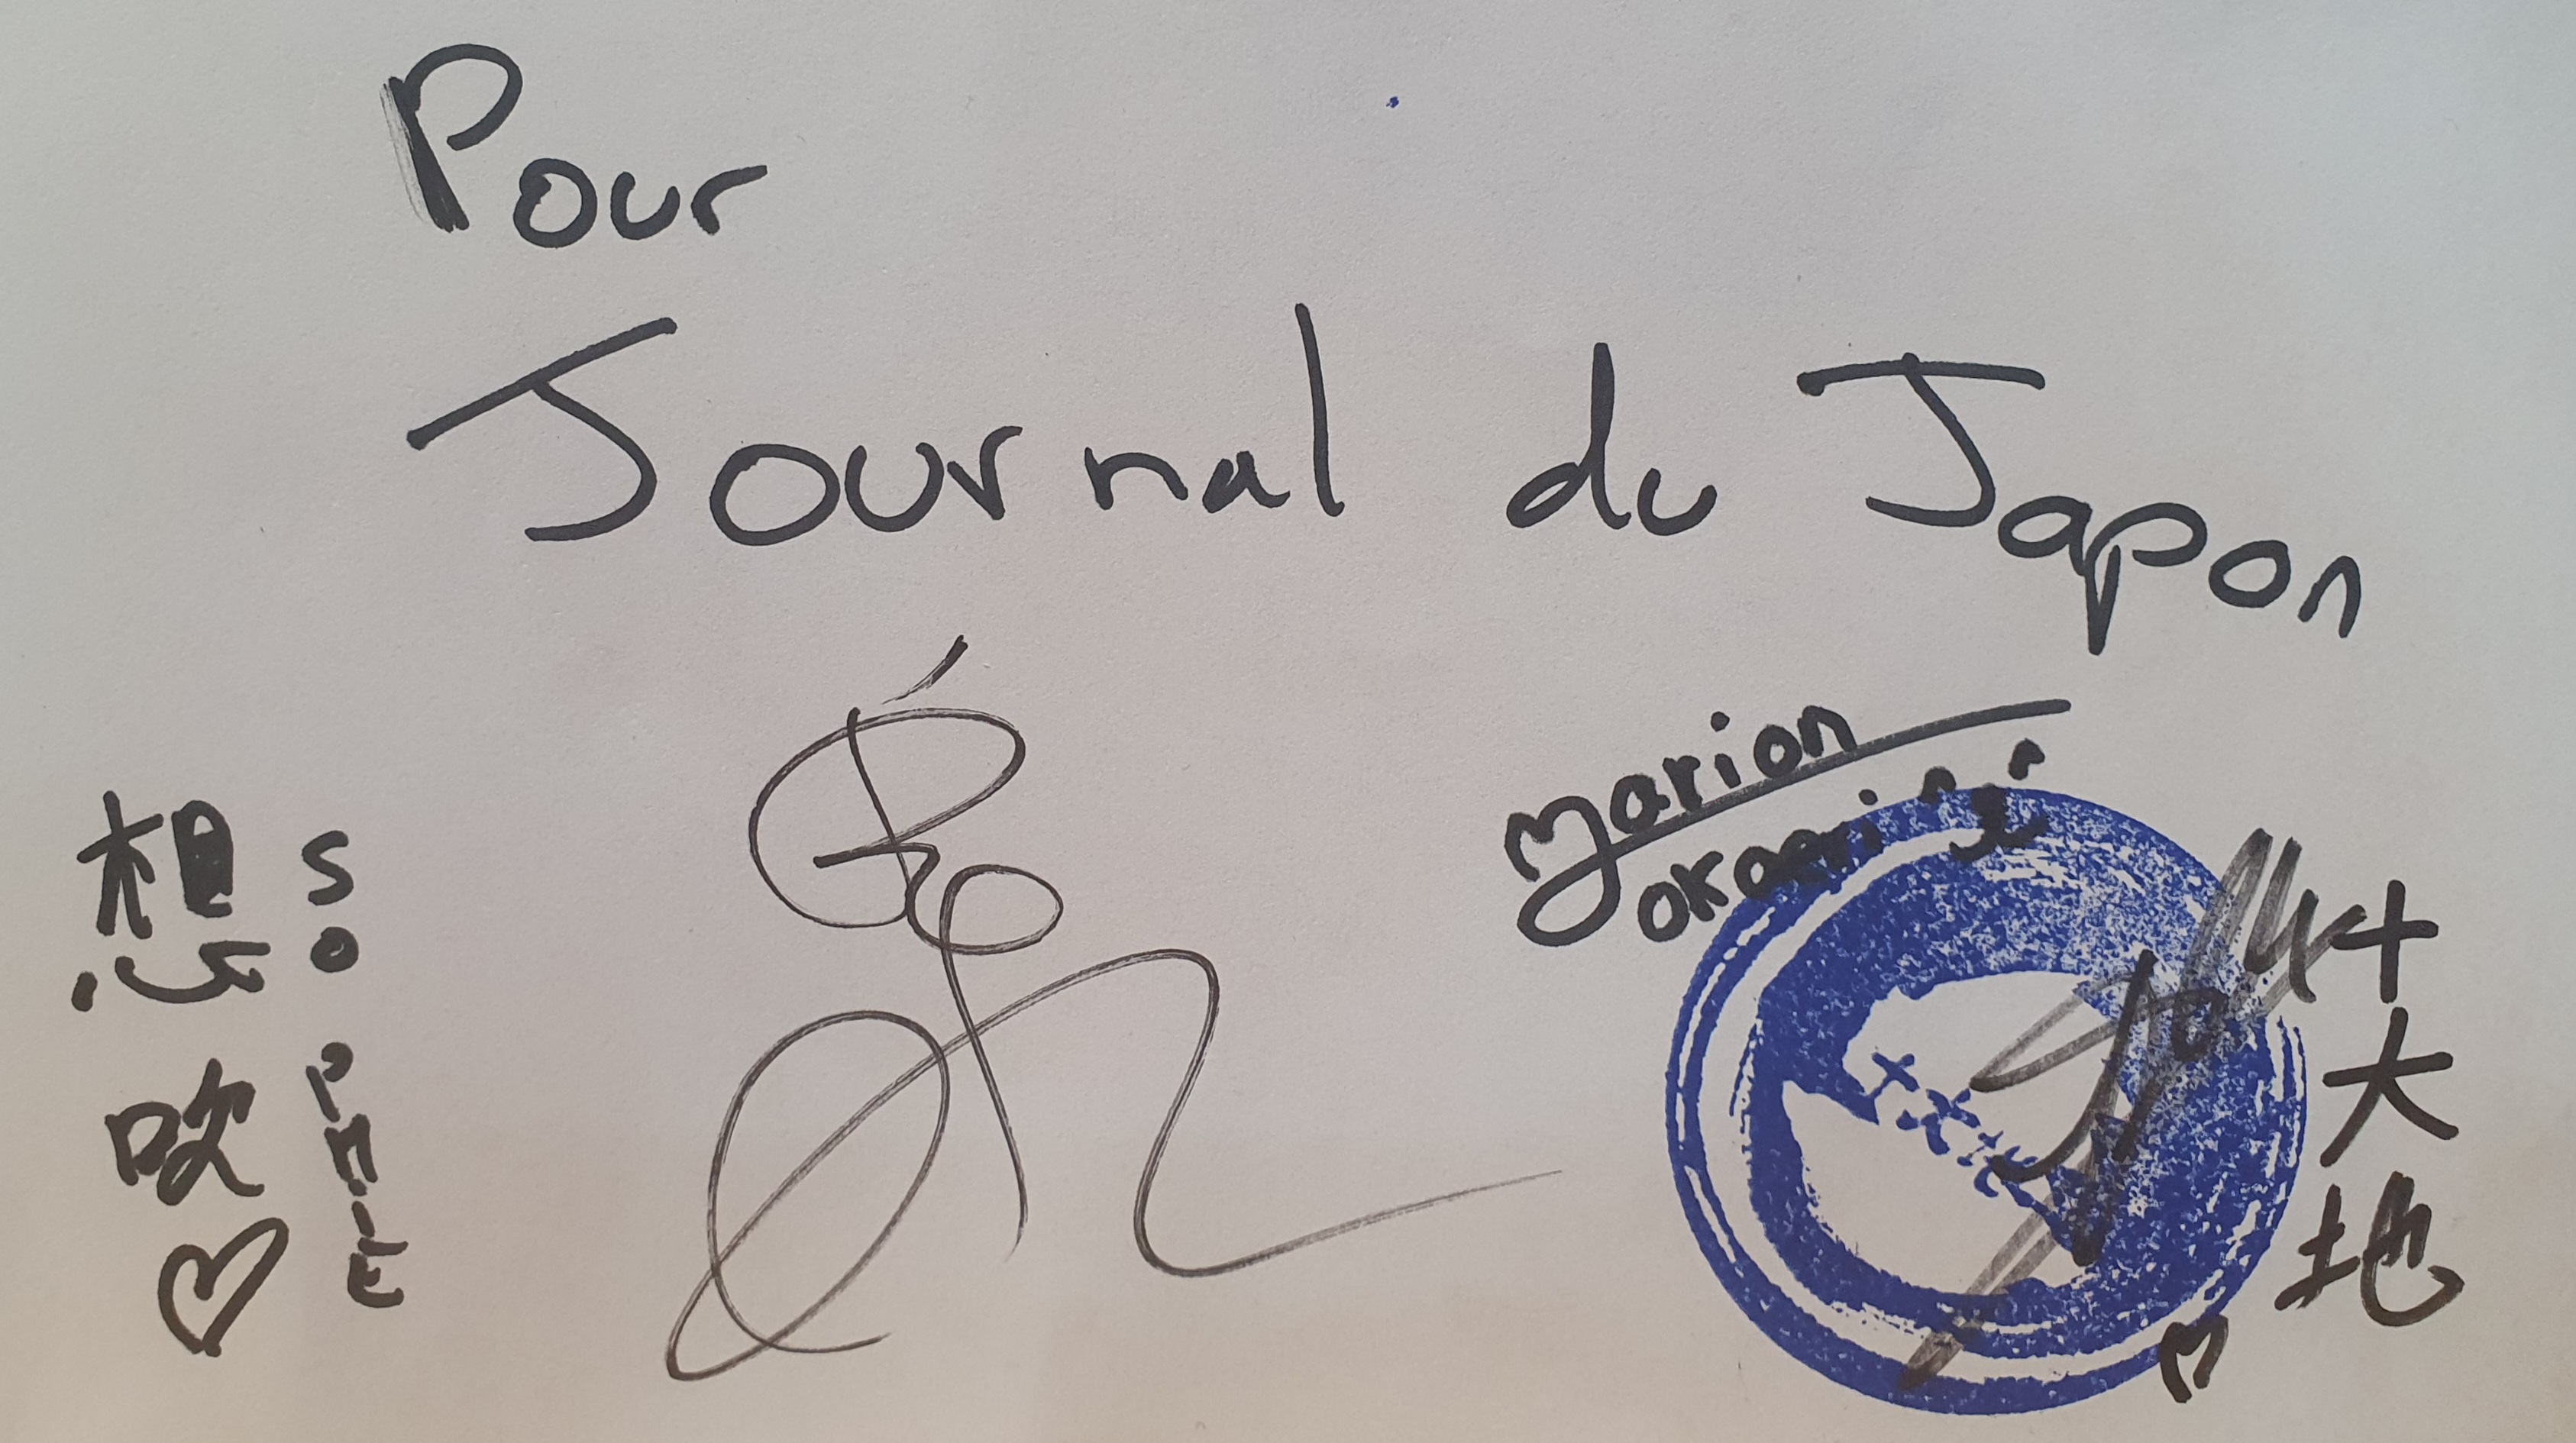 Pour
Journal du Japon
Marion
okaeri
想吹♡
SOPHIE
大地